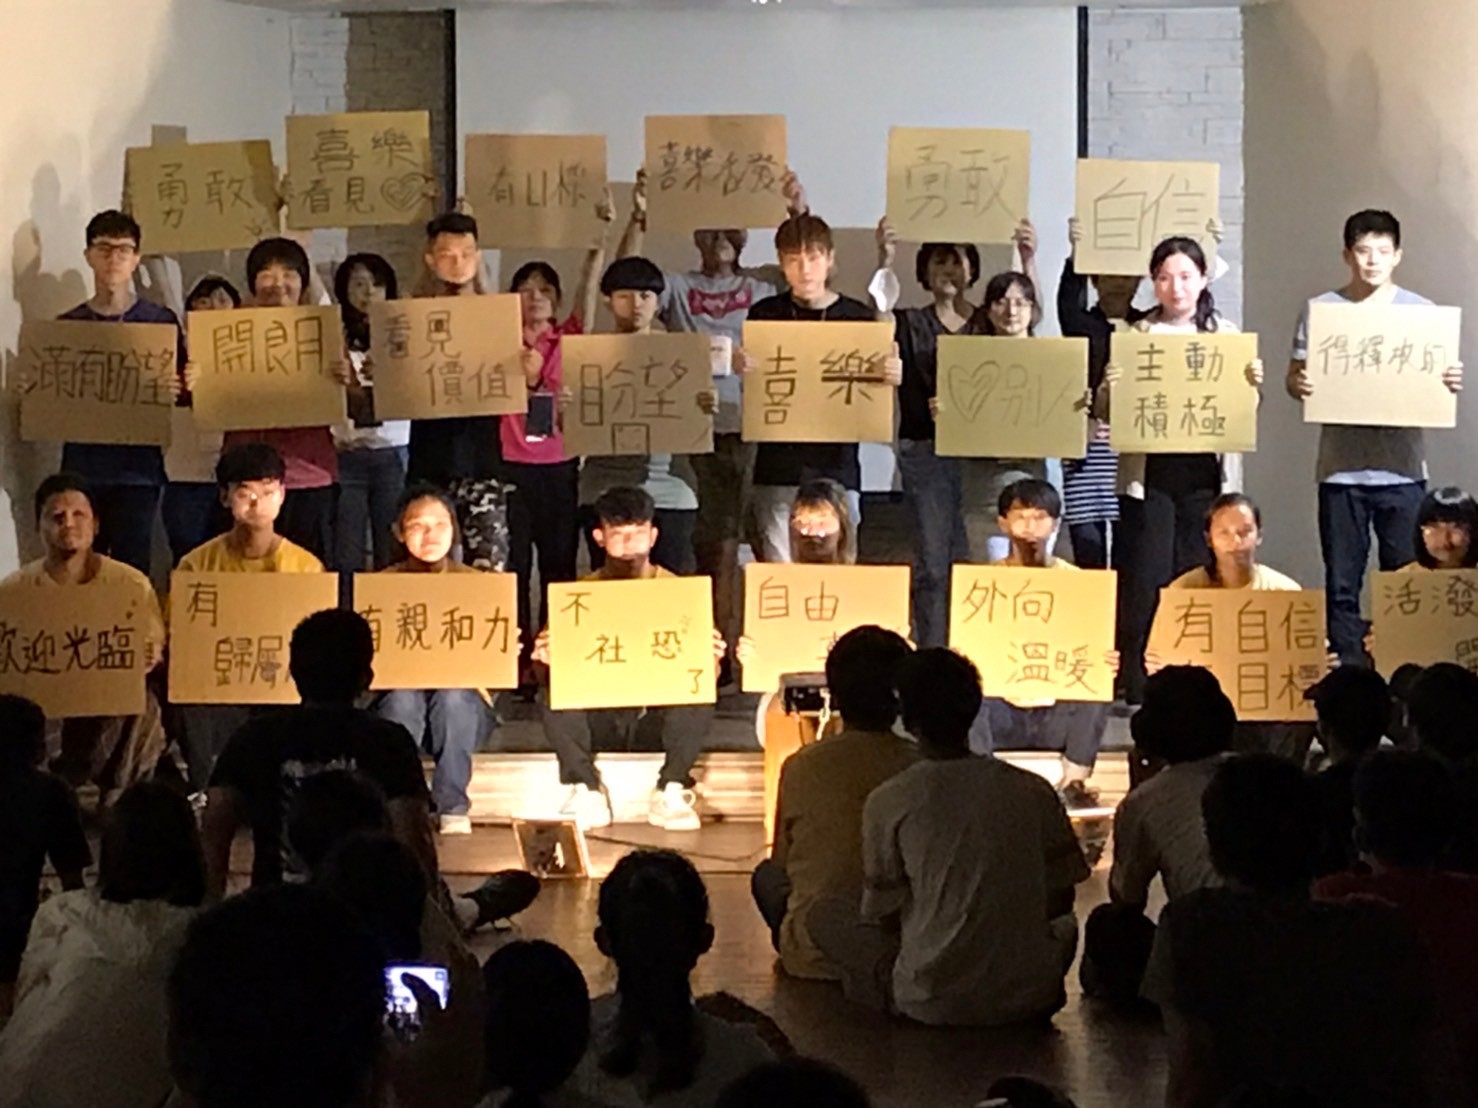 勇敢
喜樂
看見
有目標
勇敢
自信
滿有盼望
開朗
看見
價值
盼望
喜樂
別人
主動
積極
得釋放的
歡迎光臨
有
歸屬
有親和力
不
社恐
了
自由
外向
溫暖
有自信
目標
活潑